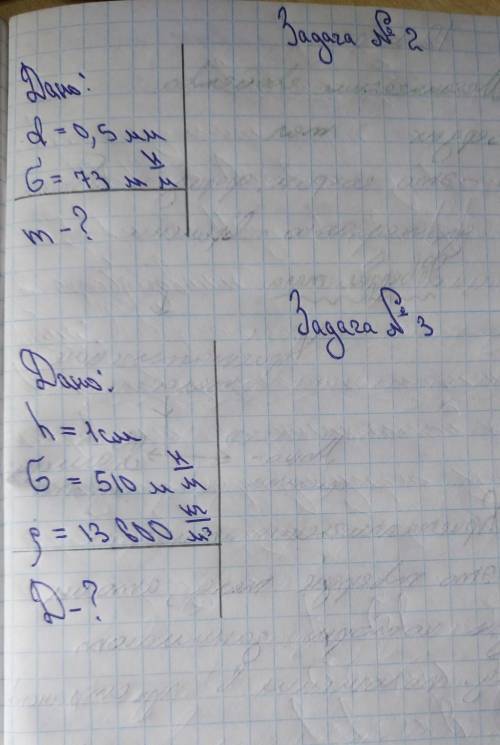 Задача № 2
Дано:
d = 0,5 мм
σ = 73 м Н/м
m - ?
Задача № 3
Дано:
h = 1 см
σ = 510 м Н/м
ρ = 13 600 кг/м³
D - ?